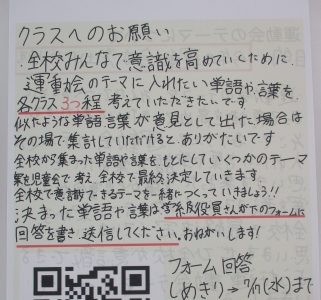 クラスへのお願い
全校みんなで意識を高めていくために、
運動会のテーマに入れたい単語や言葉を
各クラス3つ程考えていただきたいです
似たような単語言葉が意見として出た場合は
その場で集計していただけると、ありがたいです
全校から集まった単語や言葉を、もとにしていくつかのテーマ
案を児童会で考え、全校で最終決定していきます。
全校で意識できるテーマを一緒につくっていきましょう!!
決まった単語や言葉は学級役員さんが下のフォームに
回答を書き、送信してください。おねがいします!
フォーム回答
しめきり→7/11(水)まで